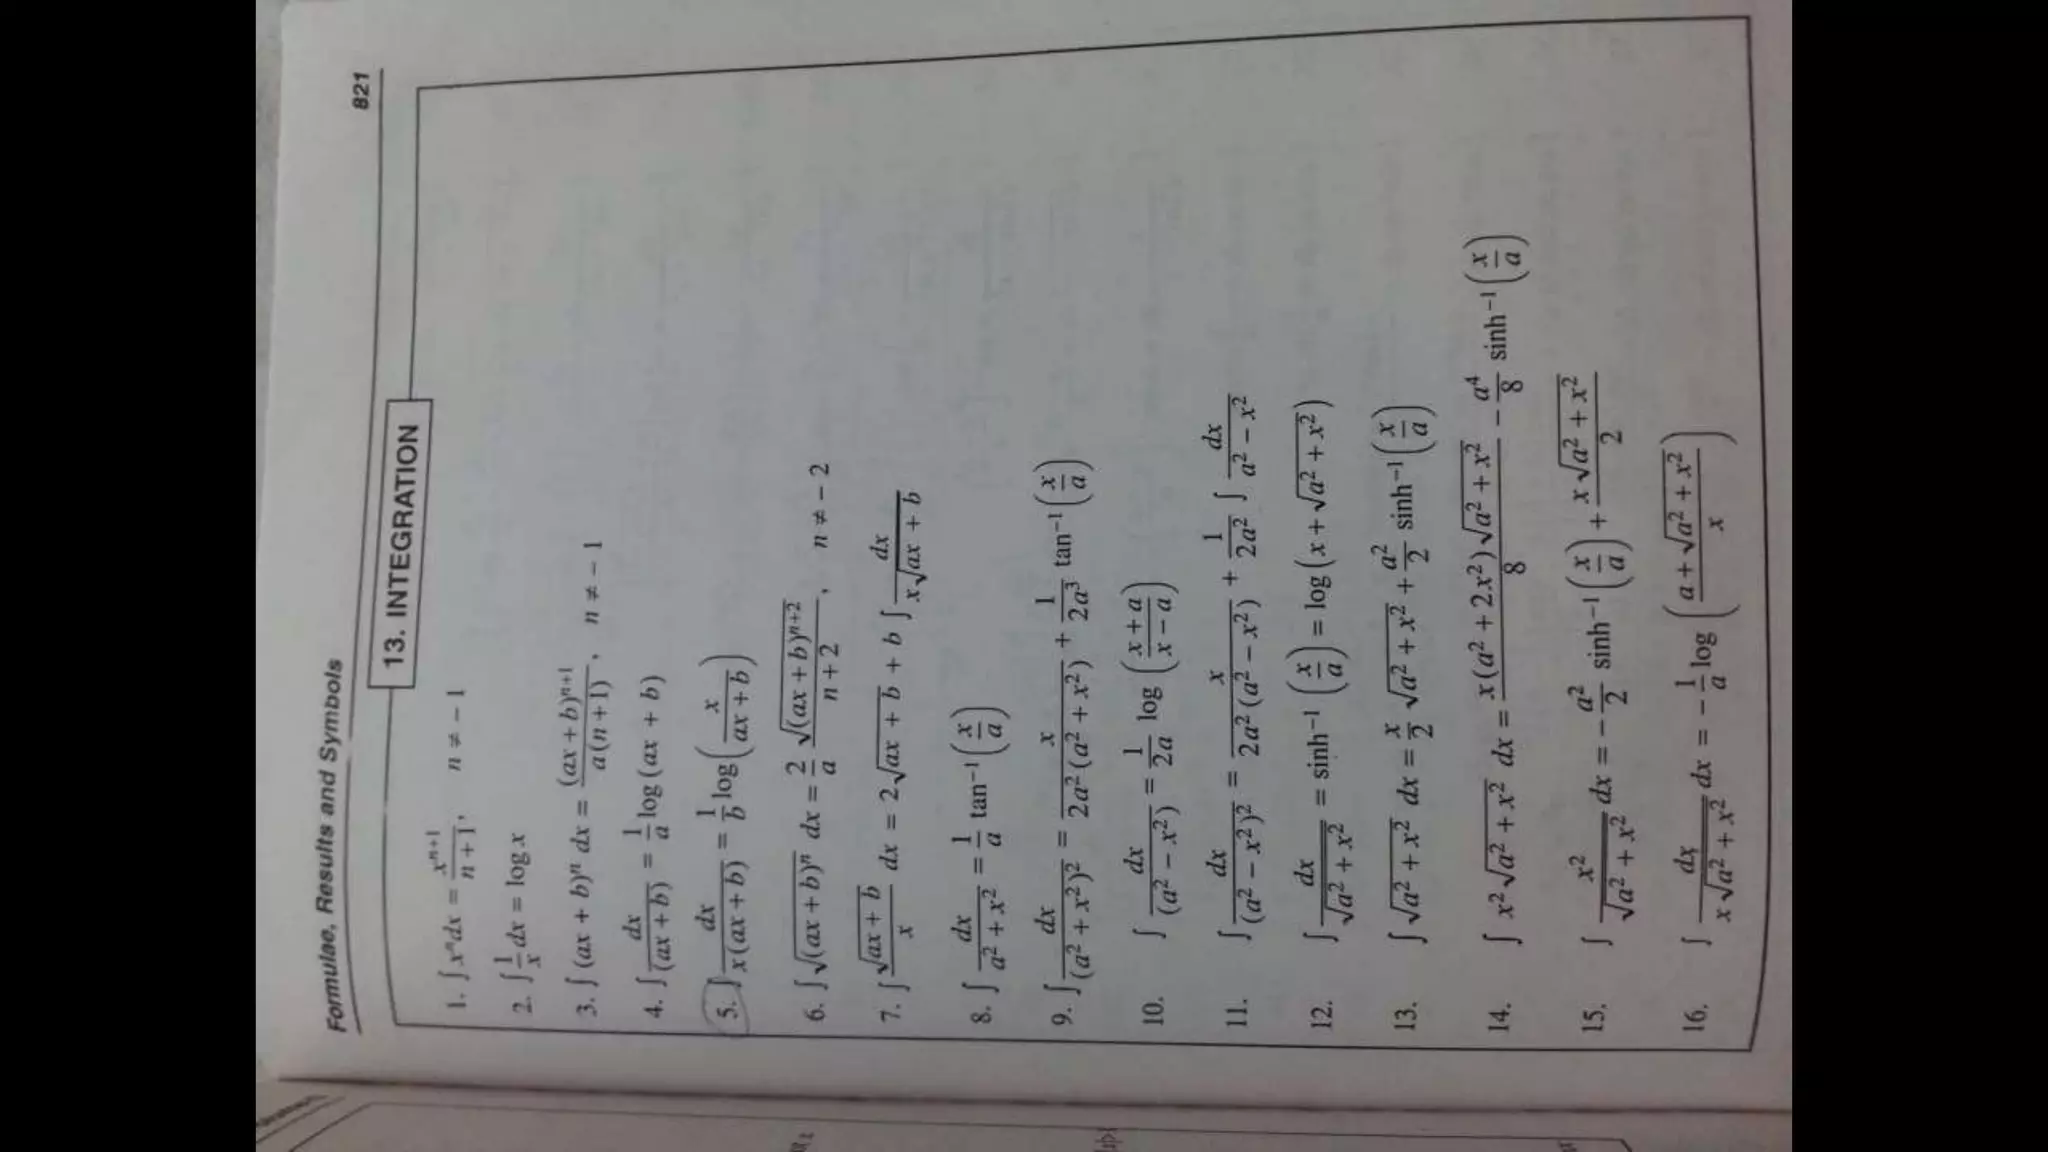 Formulae, Results and Symbols 821
13. INTEGRATION
1. ∫ xⁿdx = xⁿ⁺¹/(n + 1), n ≠ – 1
2. ∫ 1/x dx = log x
3. ∫ (ax + b)ⁿ dx = (ax + b)ⁿ⁺¹/a(n + 1), n ≠ – 1
4. ∫ dx/(ax + b) = 1/a log (ax + b)
5. ∫ dx/x(ax + b) = 1/b log (x/(ax + b))
6. ∫ √(ax + b)ⁿ dx = 2/a √(ax + b)ⁿ⁺²/(n + 2), n ≠ – 2
7. ∫ √(ax + b)/x dx = 2√(ax + b) + b ∫ dx/(x√(ax + b))
8. ∫ dx/(a² + x²) = 1/a tan⁻¹ (x/a)
9. ∫ dx/(a² + x²)² = x/(2a² (a² + x²)) + 1/2a³ tan⁻¹ (x/a)
10. ∫ dx/(a² – x²) = 1/2a log ((x + a)/(x – a))
11. ∫ dx/(a² – x²)² = x/(2a² (a² – x²)) + 1/2a² ∫ dx/(a² – x²)
12. ∫ dx/√(a² + x²) = sinh⁻¹ (x/a) = log (x + √(a² + x²))
13. ∫ √(a² + x²) dx = x/2 √(a² + x²) + a²/2 sinh⁻¹ (x/a)
14. ∫ x² √(a² + x²) dx = x (a² + 2x²) √(a² + x²)/8 – a⁴/8 sinh⁻¹ (x/a)
15. ∫ x²/√(a² + x²) dx = – a²/2 sinh⁻¹ (x/a) + x √(a² + x²)/2
16. ∫ dx/(x √(a² + x²)) dx = – 1/a log ((a + √(a² + x²))/x)